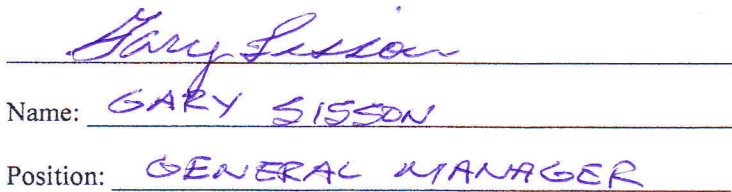 Gary Sisson
Name: GARY SISSON
Position: GENERAL MANAGER